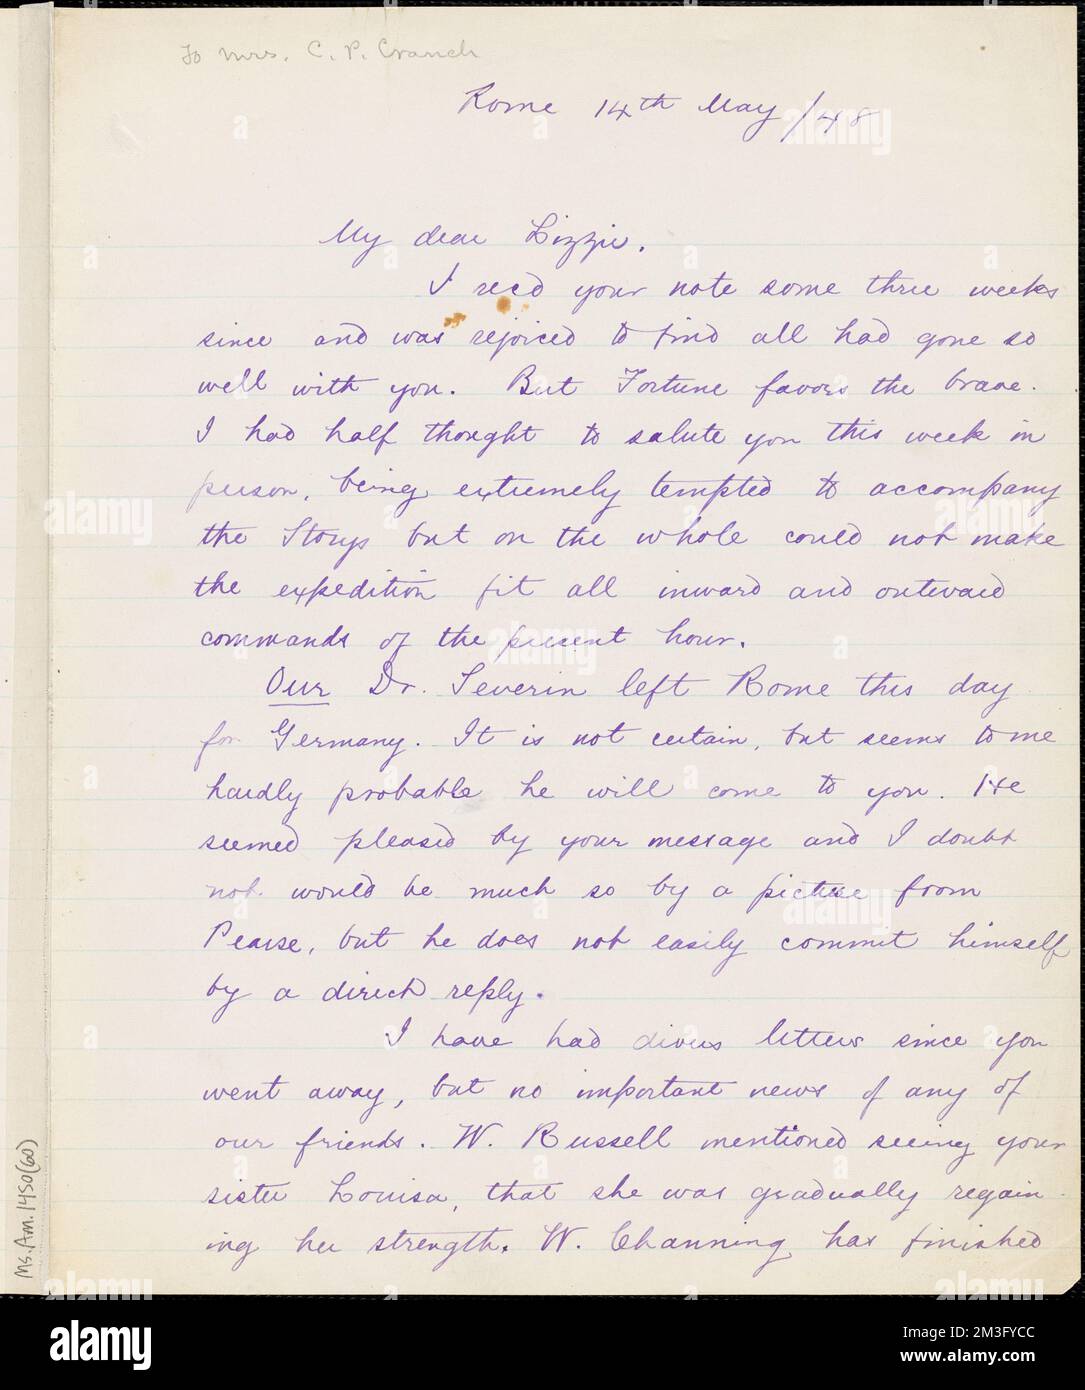 To Mrs. C. P. Cranch
Rome 14th May /48
My dear Lizzie.
I recd your note some three weeks
since and was rejoiced to find all had gone so
well with you. But Fortune favors the brave.
I had half thought to salute you this week in
person, being extremely tempted to accompany
the Storys but on the whole could not make
the expedition fit all inward and outward
commands of the present hour.
Our Dr. Severin left Rome this day
for Germany. It is not certain, but seems to me
hardly probable he will come to you. He
seemed pleased by your message and I doubt
not would be much so by a picture from
Pearse, but he does not easily commit himself
by a direct reply.
I have had divers letters since you
went away, but no important news of any of
our friends. W. Russell mentioned seeing your
sister Louisa, that she was gradually regain
ing her strength. W. Channing has finished
Ms.Am.1450(60)
alamy
Image ID: 2M3FYCC
www.alamy.com